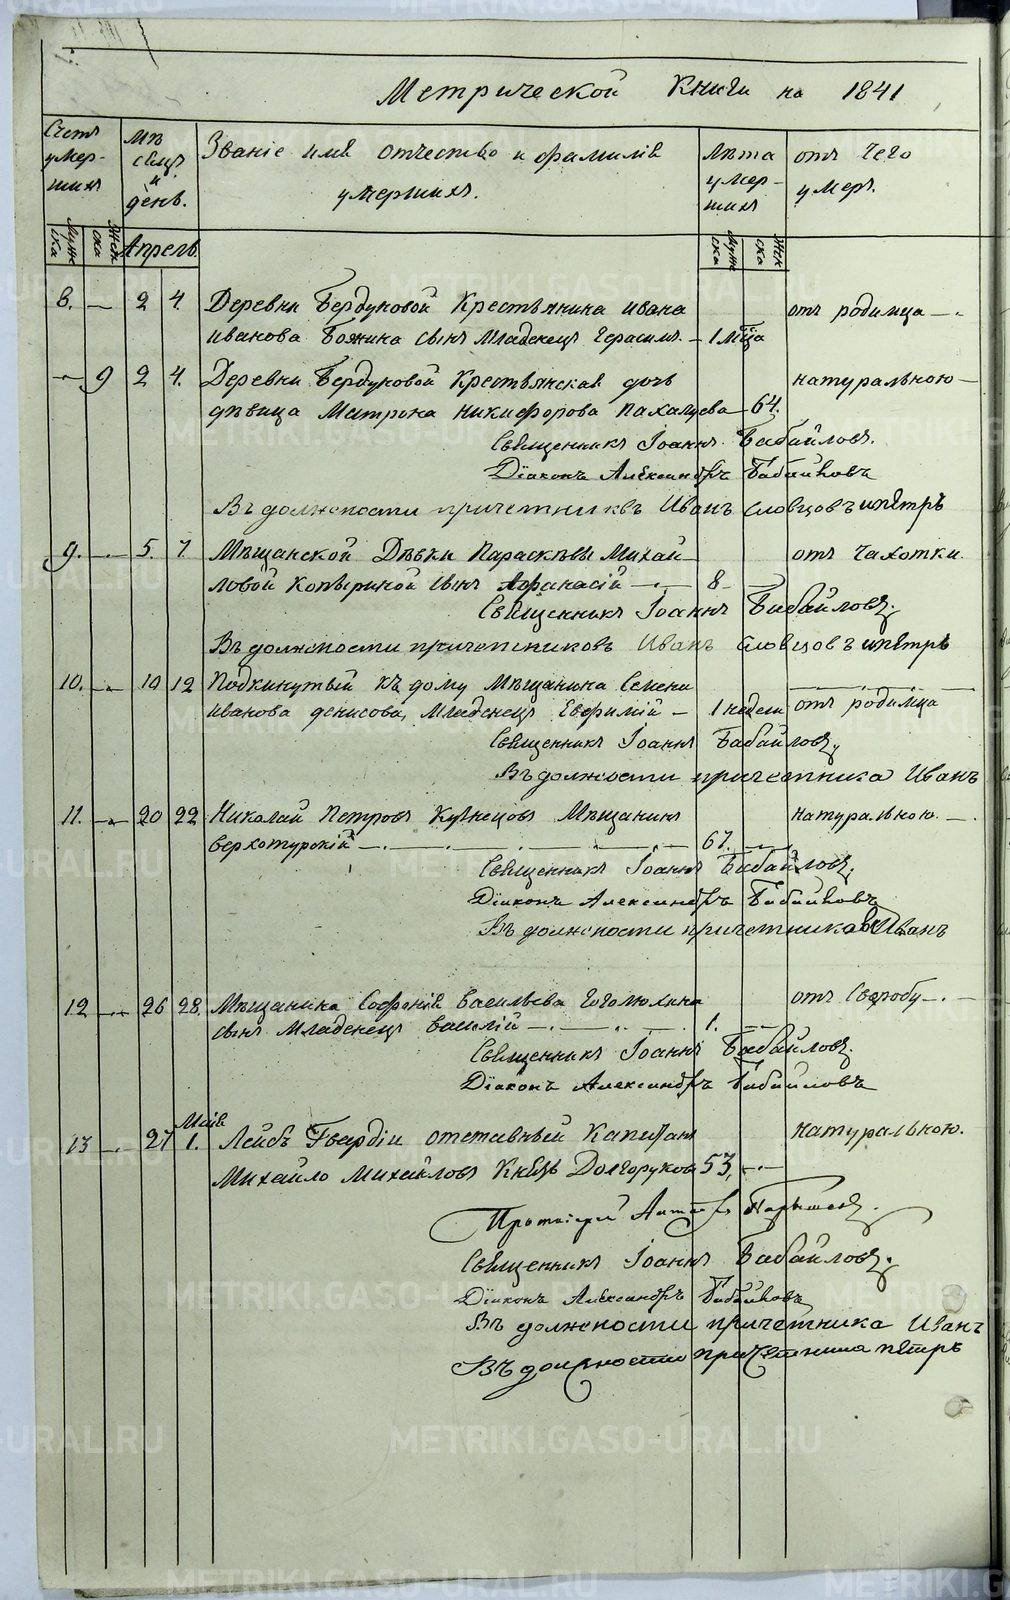 Метрической Книги на 1841
Счетъ умер-шихъ
Мѣсяцъ и день.
Званіе имя отчество и фамилія умершихъ.
Лѣта умер-шихъ
отъ чего умеръ.
муже ска
жен ска
Апрель
муже ска
жен ска
8. — 2 4. Деревни Бердуковой Крестьянина ивана
отъ родимца —
иванова Божина сынъ младенецъ Герасимъ. — 1 мца
— 9 2 4. Деревни Бердуковой Крестьянская дочь
натуральною —
дѣвица Матрона никифорова пахалуева — 64.
Священникъ Іоаннъ Бабайловъ.
Діаконъ Александръ Бабайловъ
Въ должности причетниковъ Иванъ словцовъ ипетръ
9. — 5. 7. Мѣщанской Дѣвки Параскѣвы Михай-
отъ чахотки
ловой Копыриной сынъ Афанасій — 8 —
Священникъ Іоаннъ Бабайловъ.
Въ должности причетниковъ Иванъ словцовъ ипетръ
10. — 10 12 Подкинутый къ дому Мѣщанина Семена
иванова денисова, Младенецъ Евфимій — 1 недели отъ родимца
Священникъ Іоаннъ Бабайловъ,
Въ должности причетника Иванъ
11. — 20 22 Николай Петровъ Кузнецовъ Мѣщанинъ
натуральною. —
верхотурскій — 67. —
Священникъ Іоаннъ Бабайловъ,
Діаконъ Александръ Бабайловъ
Въ должности причетника Иванъ
12 — 26 28. Мѣщанина Софонія Васильева Гоголюхина
отъ Своробу —
сынъ младенецъ василій — 1. —
Священникъ Іоаннъ Бабайловъ.
Діаконъ Александръ Бабайловъ
Маія
13 — 27 1. Лейбъ Гвардіи отставный Капитанъ
натуральною.
Михайло Михайловъ Князь Долгоруковъ 53. —
Протоіерей
Священникъ Іоаннъ Бабайловъ.
Діаконъ Александръ Бабайловъ
Въ должности причетника Иванъ
Въ должности причетника петръ
METRIKI.GASO-URAL.RU